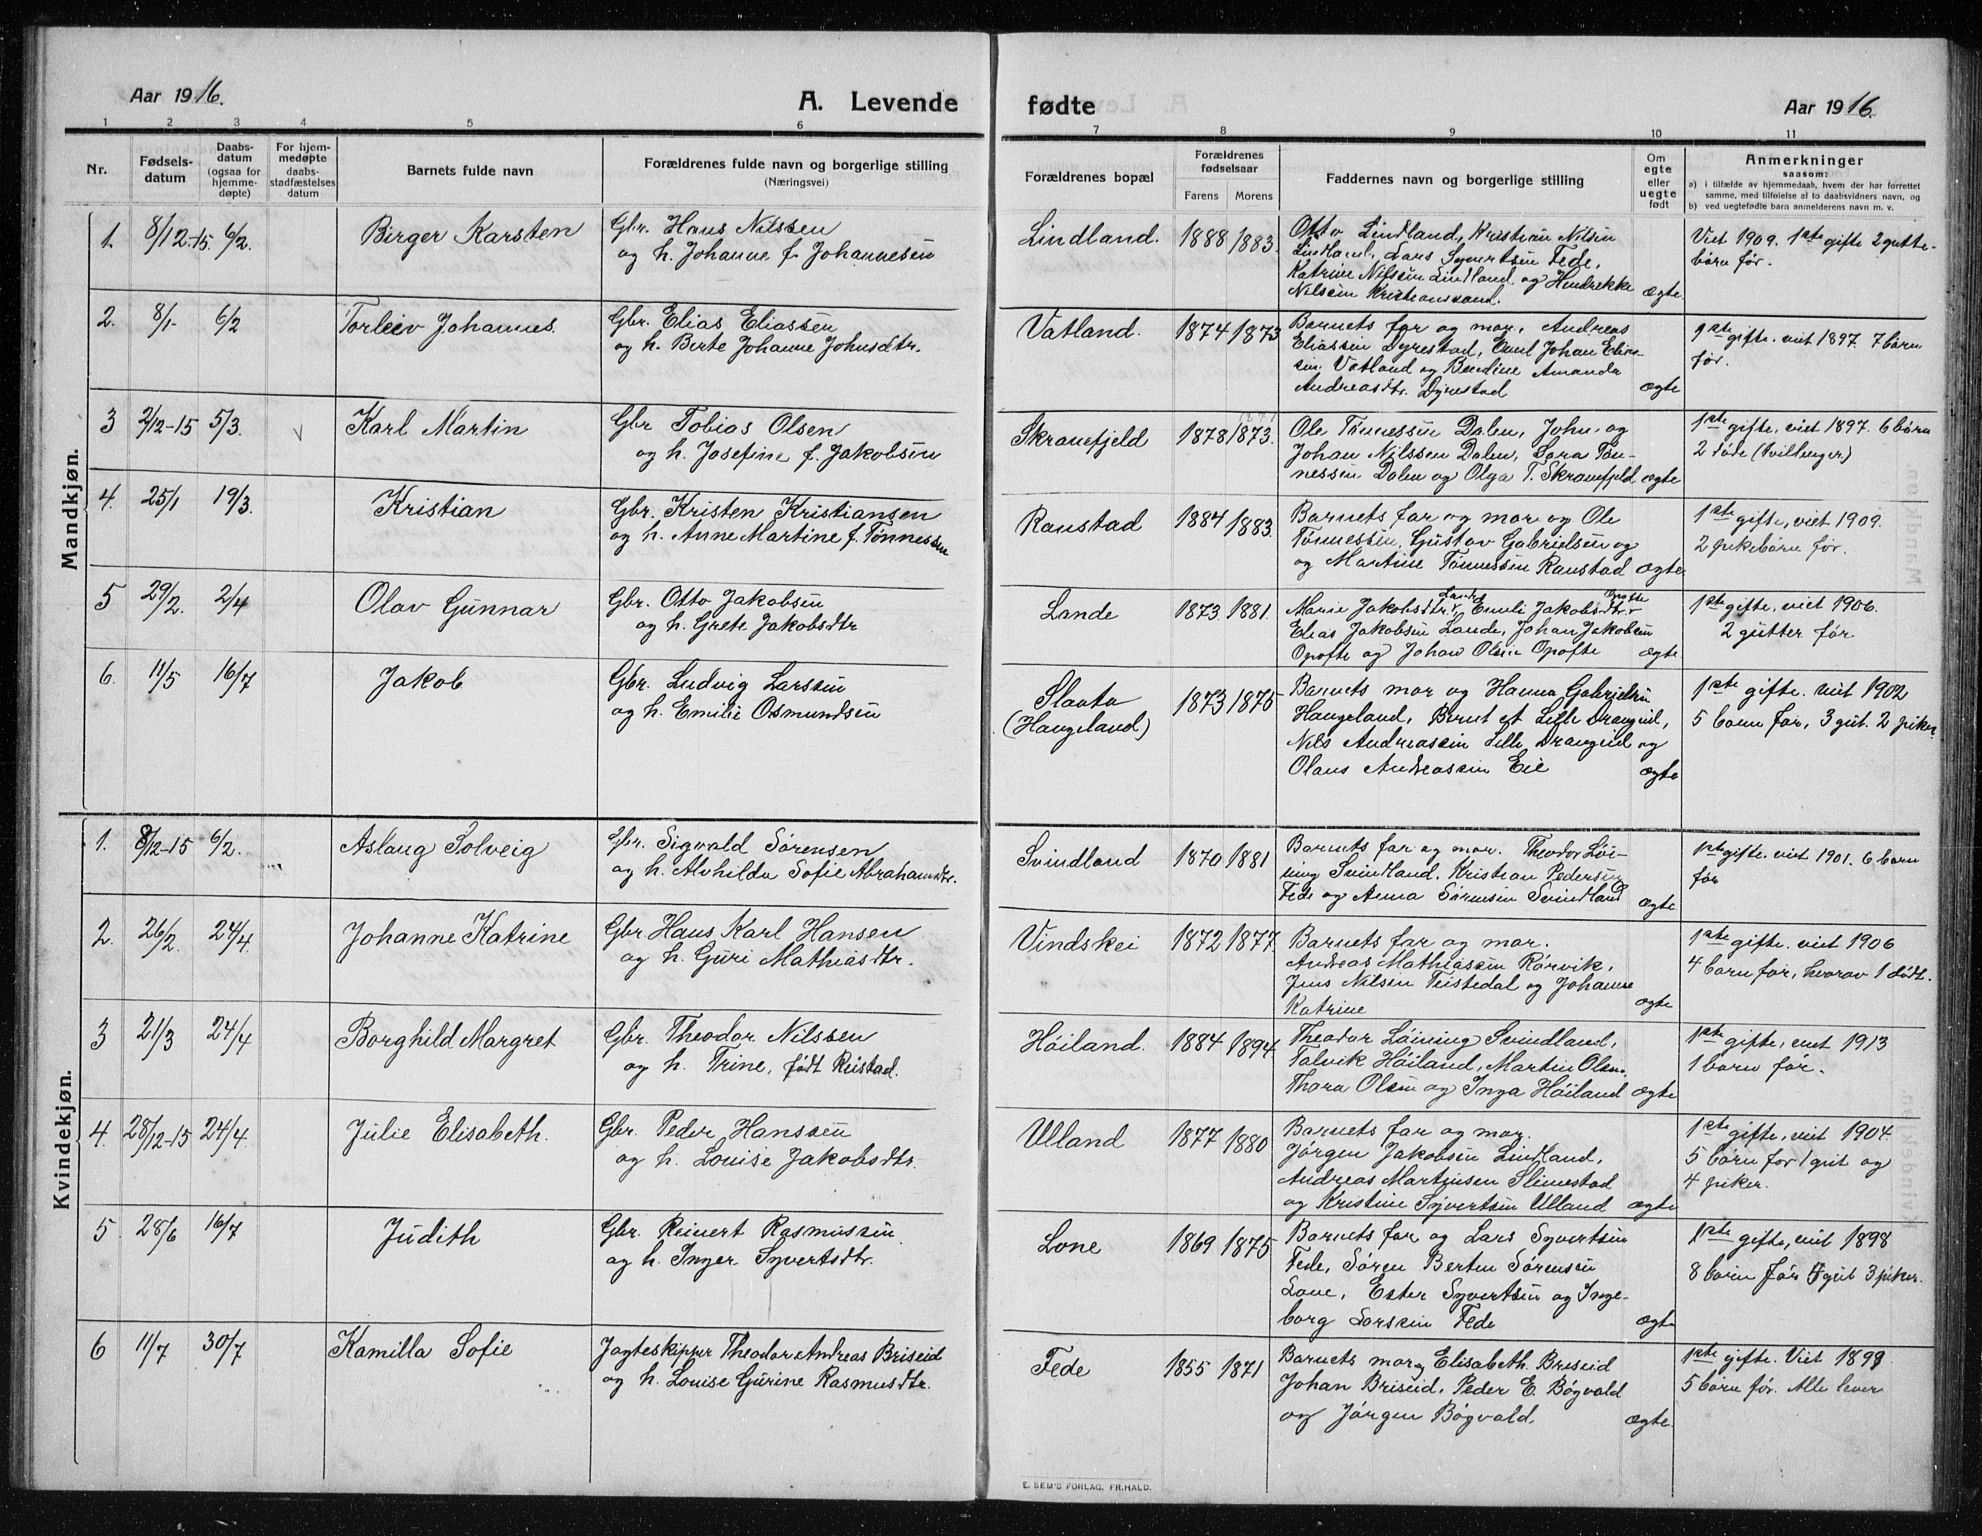 Aar 1916.
A. Levende
fødte
Aar 1916.
1 2 3 4 5 6 7 8 9 10 11
Nr.
Fødsels-
datum
Daabs-
datum
(ogsaa for
hjemme-
døpte)
For hjem-
medøpte
daabs-
stadfæstelses
datum
Barnets fulde navn
Forældrenes fulde navn og borgerlige stilling
(Næringsvei)
Forældrenes bopæl
Forældrenes
fødselsaar
Farens Morens
Faddernes navn og borgerlige stilling
Om
egte
eller
uegte
født
Anmerkninger
saasom:
a) i tilfælde av hjemmedaab, hvem der har forrettet
samme, med tilføielse af to daabsvidners navn, og
b) ved uegtefødte barn anmelderens navn m. v.
Mandkjøn.
1. 8/12-15. 6/2. Birger Karsten
Gbr. Hans Nilssen
og h. Johanne f. Johannesen
Lindland. 1888 1883.
Otto Lindland, Kristian Nilsen
Lindland, Lars Syvertsen Fede,
Katrine Nilsen Lindland og Hendrekke
Nilsen Kristianssand. ægte
Viet 1909. 1ste gifte 2 gutte-
børn før.
2. 8/1- 6/2 Torleiv Johannes.
Gbr. Elias Eliassen
og h. Berte Johanne Johnsdtr.
Vatland. 1874 1873
Barnets far og mor, Andreas
Eliassen Dyrestad, Emil Johan Elias-
sen Vatland og Bendine Amanda
Andreasdtr. Dyrestad ægte
1ste gifte. viet 1897. 7 børn
før.
3 2/12-15 5/3. Karl Martin
Gbr Tobias Olsen
og h. Josefine f. Jakobsen
Skranefjeld 1878 1873.
Ole Tønnessen Dalen, John og
Johan Nilssen Dalen, Sara Tøn-
nessen Dalen og Olga T. Skranefjeld ægte
1ste gifte, viet 1897. 6 børn
2 døde (tvillinger)
4. 25/1 19/3. Kristian
Gbr. Kristen Kristiansen
og h. Anne Martine f. Tønnessen
Ranstad 1884 1883.
Barnets far og mor og Ole
Tønnessen, Gustav Gabrielsen og
og Martine Tønnessen Ranstad ægte
1ste gifte, viet 1909.
2 pikebørn før.
5 29/2. 2/4 Olav Gunnar
Gbr. Otto Jakobsen
og h. Grete Jakobsdtr
Lande 1873. 1881.
Lande Opofte
Marie Jakobsdtr. og Emili Jakobsdtr.
Elias Jakobsen Lande, Johan Jakobsen
Opofte og Johan Olsen Opofte ægte
1ste gifte, viet 1906.
2 gutter før
6. 11/5 16/7 Jakob
Gbr. Ludvig Larssen
og h. Emilie Osmundsen
Slaata
(Haugeland) 1873 1875
Barnets mor og Hanna Gabrielsen
Haugeland, Bernt et Lille Drangeid,
Nils Andreassen Lille Drangeid og
Olaus Andreassen Eie ægte
1ste gifte. viet 1902
5 børn før, 3 gut. 2 piker.
Kvindekjøn.
1. 8/12-15 6/2. Aslaug Solveig
Gbr. Sigvald Sørensen
og h. Alvhilda Sofie Abrahamsdtr.
Svindland 1870 1881
Barnets far og mor. Theodor Løi-
ning Svindland, Kristian Pedersen
Fede og Anna Sørensen Svindland ægte
1ste gifte. viet 1901. 6 børn
før
2. 26/2. 24/4. Johanne Katrine
Gbr Hans Karl Hansen
og h. Guri Mathiasdtr.
Vindskei 1872 1877
Barnets far og mor.
Andreas Mathiassen Rørvik,
Jens Nilsen Teistedal og Johanne
Katrine ægte
1ste gifte. viet 1906
4 børn før, hvorav 1 dødt.
3 21/3 24/4 Borghild Margret
Gbr. Theodor Nilssen
og h. Trine, født Reistad.
Høiland. 1884 1894
Theodor Løining Svindland,
Salvik Høiland, Martin Olsen,
Thora Olsen og Inga Høiland ægte
1ste gifte, viet 1913
1 børn før.
4. 28/12-15 24/4. Julie Elisabeth.
Gbr. Peder Hanssen
og h. Louise Jakobsdtr.
Ulland 1877 1880
Barnets far og mor.
Jørgen Jakobsen Lindland,
Andreas Martinsen Slimestad
og Kristine Syvertsen Ulland ægte
1ste gifte, viet 1904.
5 børn før 1 gut og
4 piker.
5 28/6 16/7 Judith
Gbr. Reinert Rasmussen
og h. Inger Syvertsdtr.
Lone 1869 1875
Barnets far og Lars Syvertsen
Fede, Søren Berten Sørensen
Lone, Ester Syvertsen og Inge-
borg Larsen Fede ægte
1ste gifte, viet 1898
8 børn før 5 gut 3 piker.
6 11/7 30/7 Kamilla Sofie
Jagteskipper Theodor Andreas Briseid
og h. Louise Gurine Rasmusdtr.
Fede 1855 1871
Barnets mor og Elisabeth Briseid
Johan Briseid, Peder E. Bøgvald
og Jørgen Bøgvald. ægte
1ste gifte. Viet 1899
5 børn før. Alle lever
E. SEM'S FORLAG, FR.HALD.